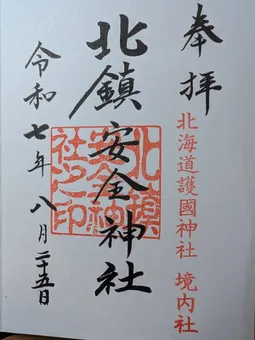 奉拝
北海道護國神社 境内社
北鎮安全神社
北鎮安全神社之印
令和七年八月二十五日